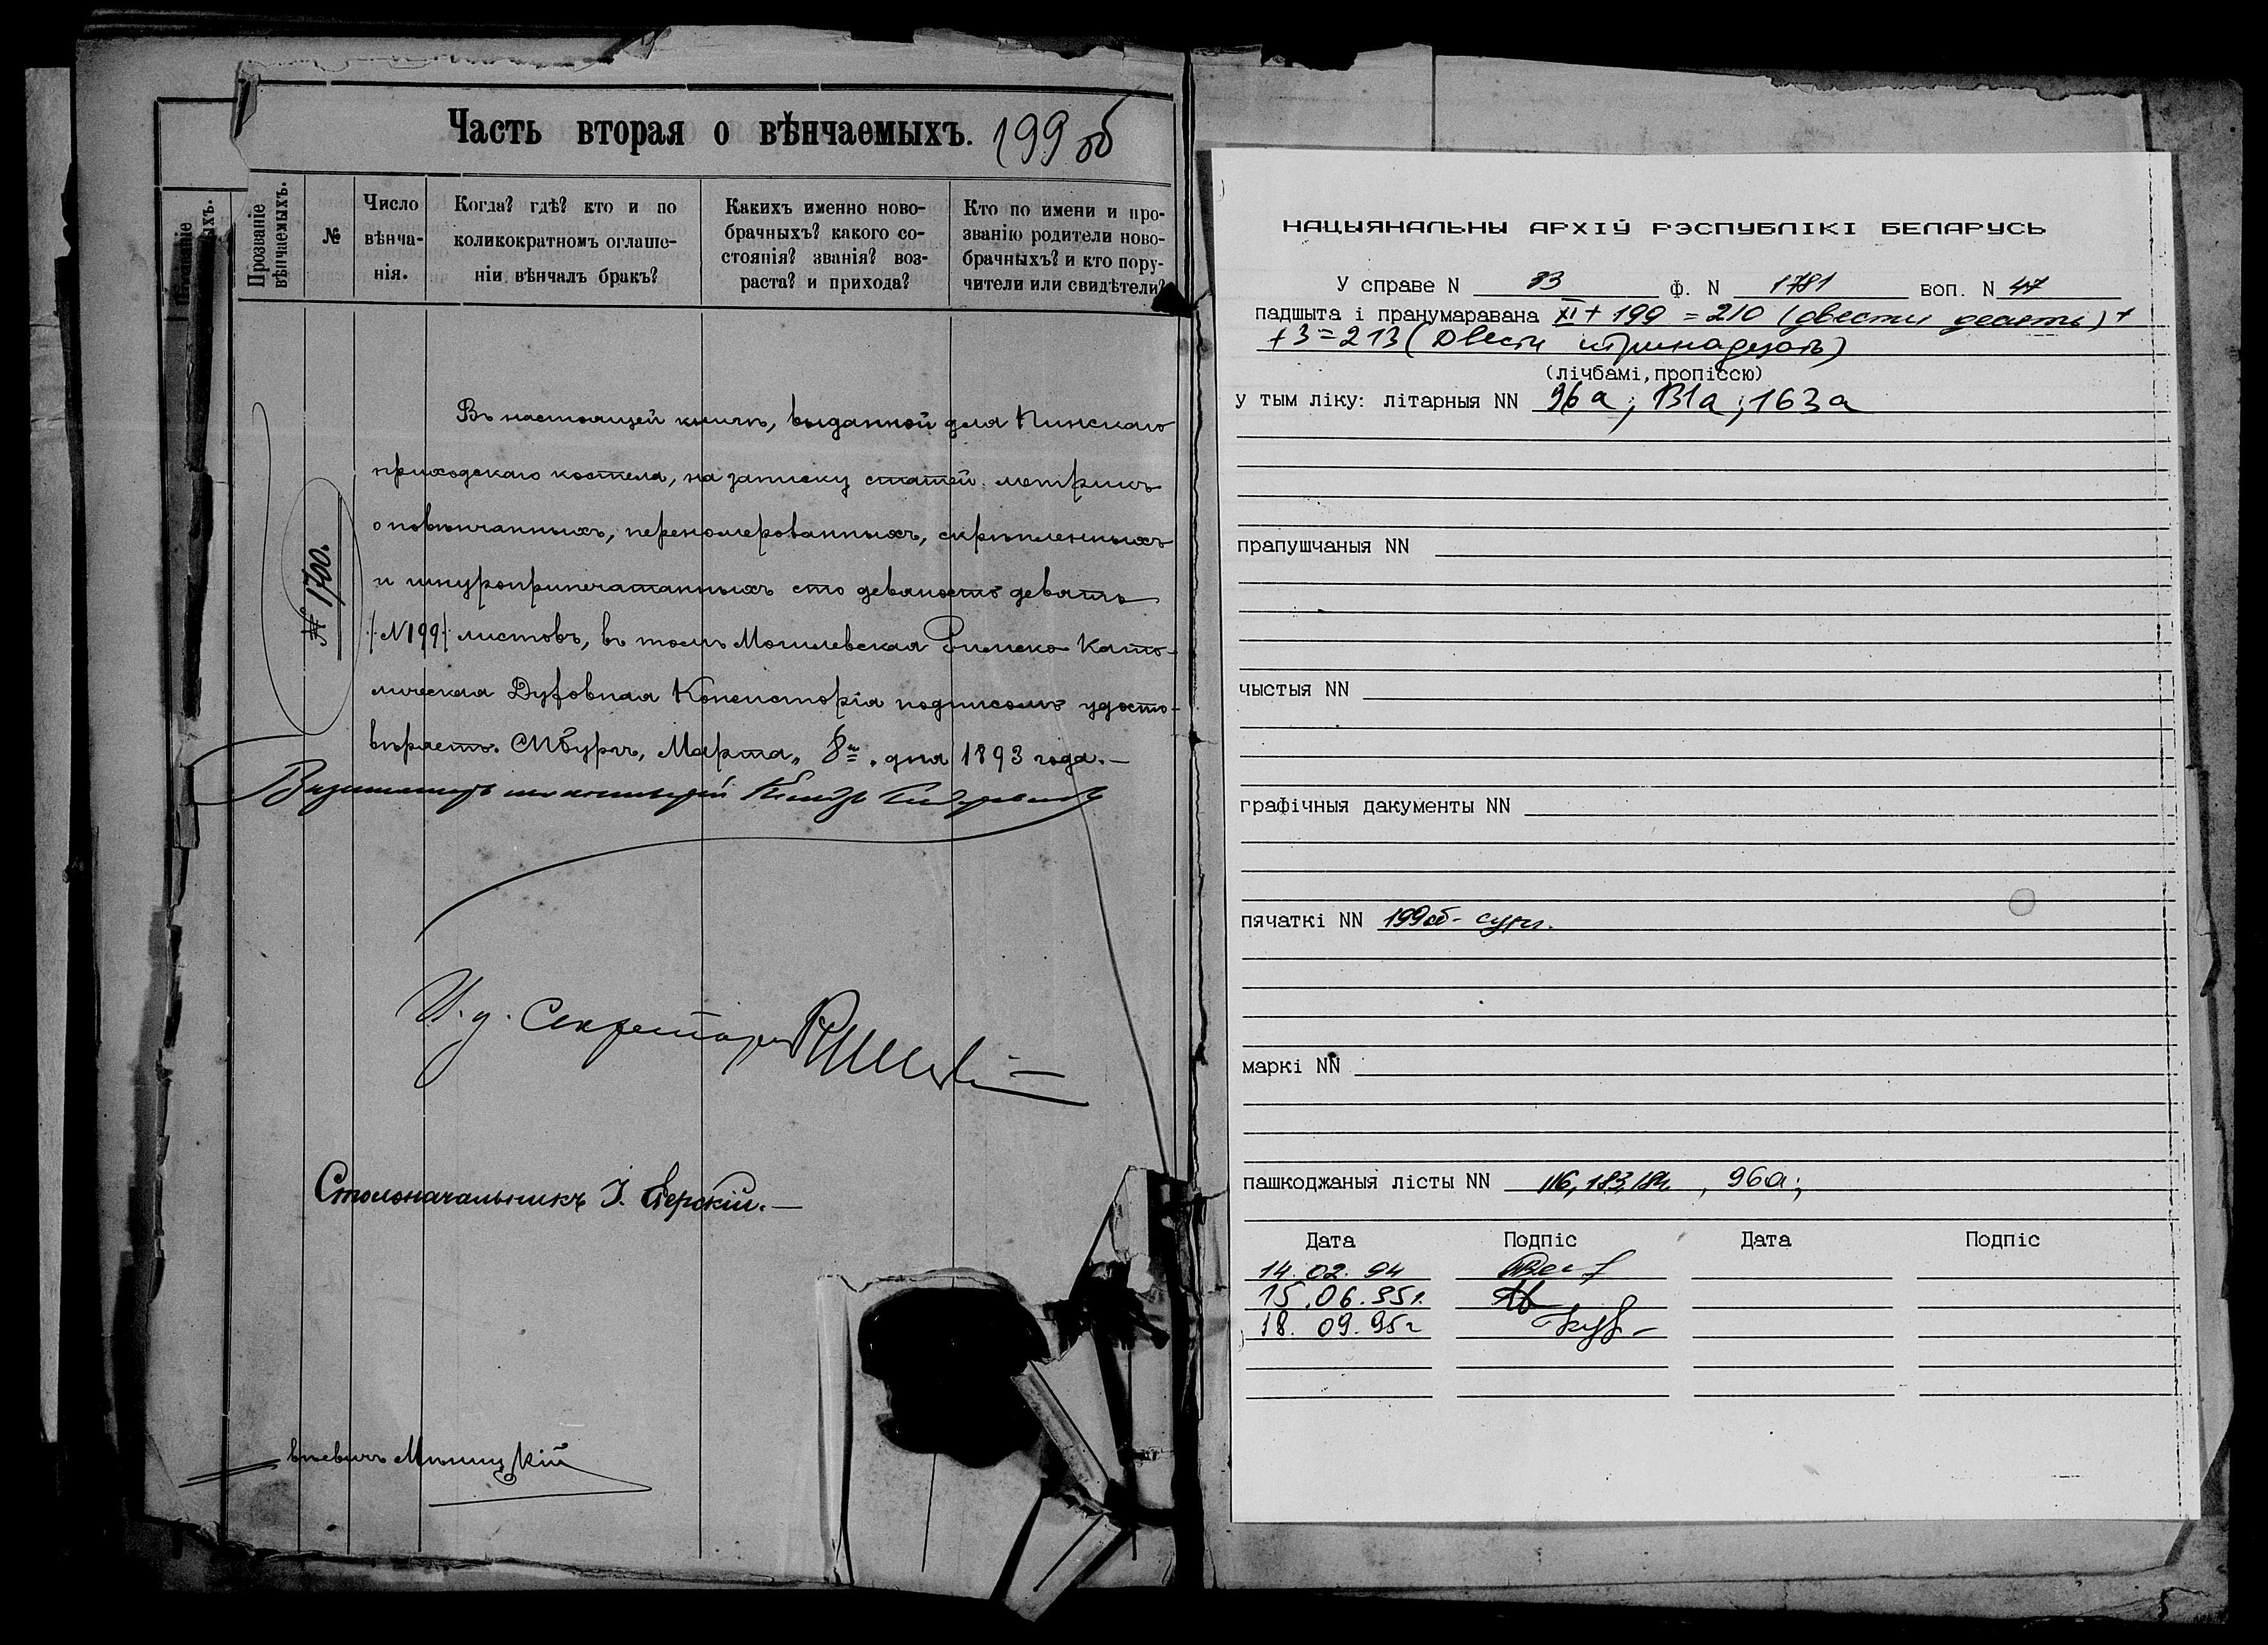 Часть вторая о вѣнчаемыхъ. 199 об
Прозваніе вѣнчаемыхъ.
№
Число вѣнча-нія.
Когда? гдѣ? кто и по
коликократномъ оглаше-
ніи вѣнчалъ бракъ?
Какихъ именно ново-
брачныхъ? какого со-
стоянія? званія? воз-
раста? и прихода?
Кто по имени и про-
званію родители ново-
брачныхъ? и кто пору-
чители или свидѣтели?
№ 1700.
Въ настоящей книгѣ, выданной для Пинскаго
приходскаго костела, на записку статей метрикъ
о повѣнчанныхъ, перенумерованныхъ, скрѣпленныхъ
и шнуроприпечатанныхъ сто девяность девять
(N199) листовъ, въ томъ Могилевская Римско Като-
лическая Духовная Консисторія подписомъ удосто-
вѣряетъ. СПбургъ, Марта „ 8го „ дня 1893 года.—
И. д. Секретаря
Столоначальникъ І.
НАЦЫЯНАЛЬНЫ АРХІЎ РЭСПУБЛІКІ БЕЛАРУСЬ
У справе N 33 Ф. N 1781 воп. N 47
падшыта і пранумаравана XI + 199 = 210 (двести десять) +
+ 3 = 213 (Двести тринадцать)
(лічбамі, пропіссю)
у тым ліку: літарныя NN 96а; 131а; 163а
прапушчаныя NN
чыстыя NN
графічныя дакументы NN
пячаткі NN 199об - сург.
маркі NN
пашкоджаныя лісты NN 116, 183, 184, 96а;
Дата Подпіс Дата Подпіс
14.02.94
15.06.95г.
18.09.95г